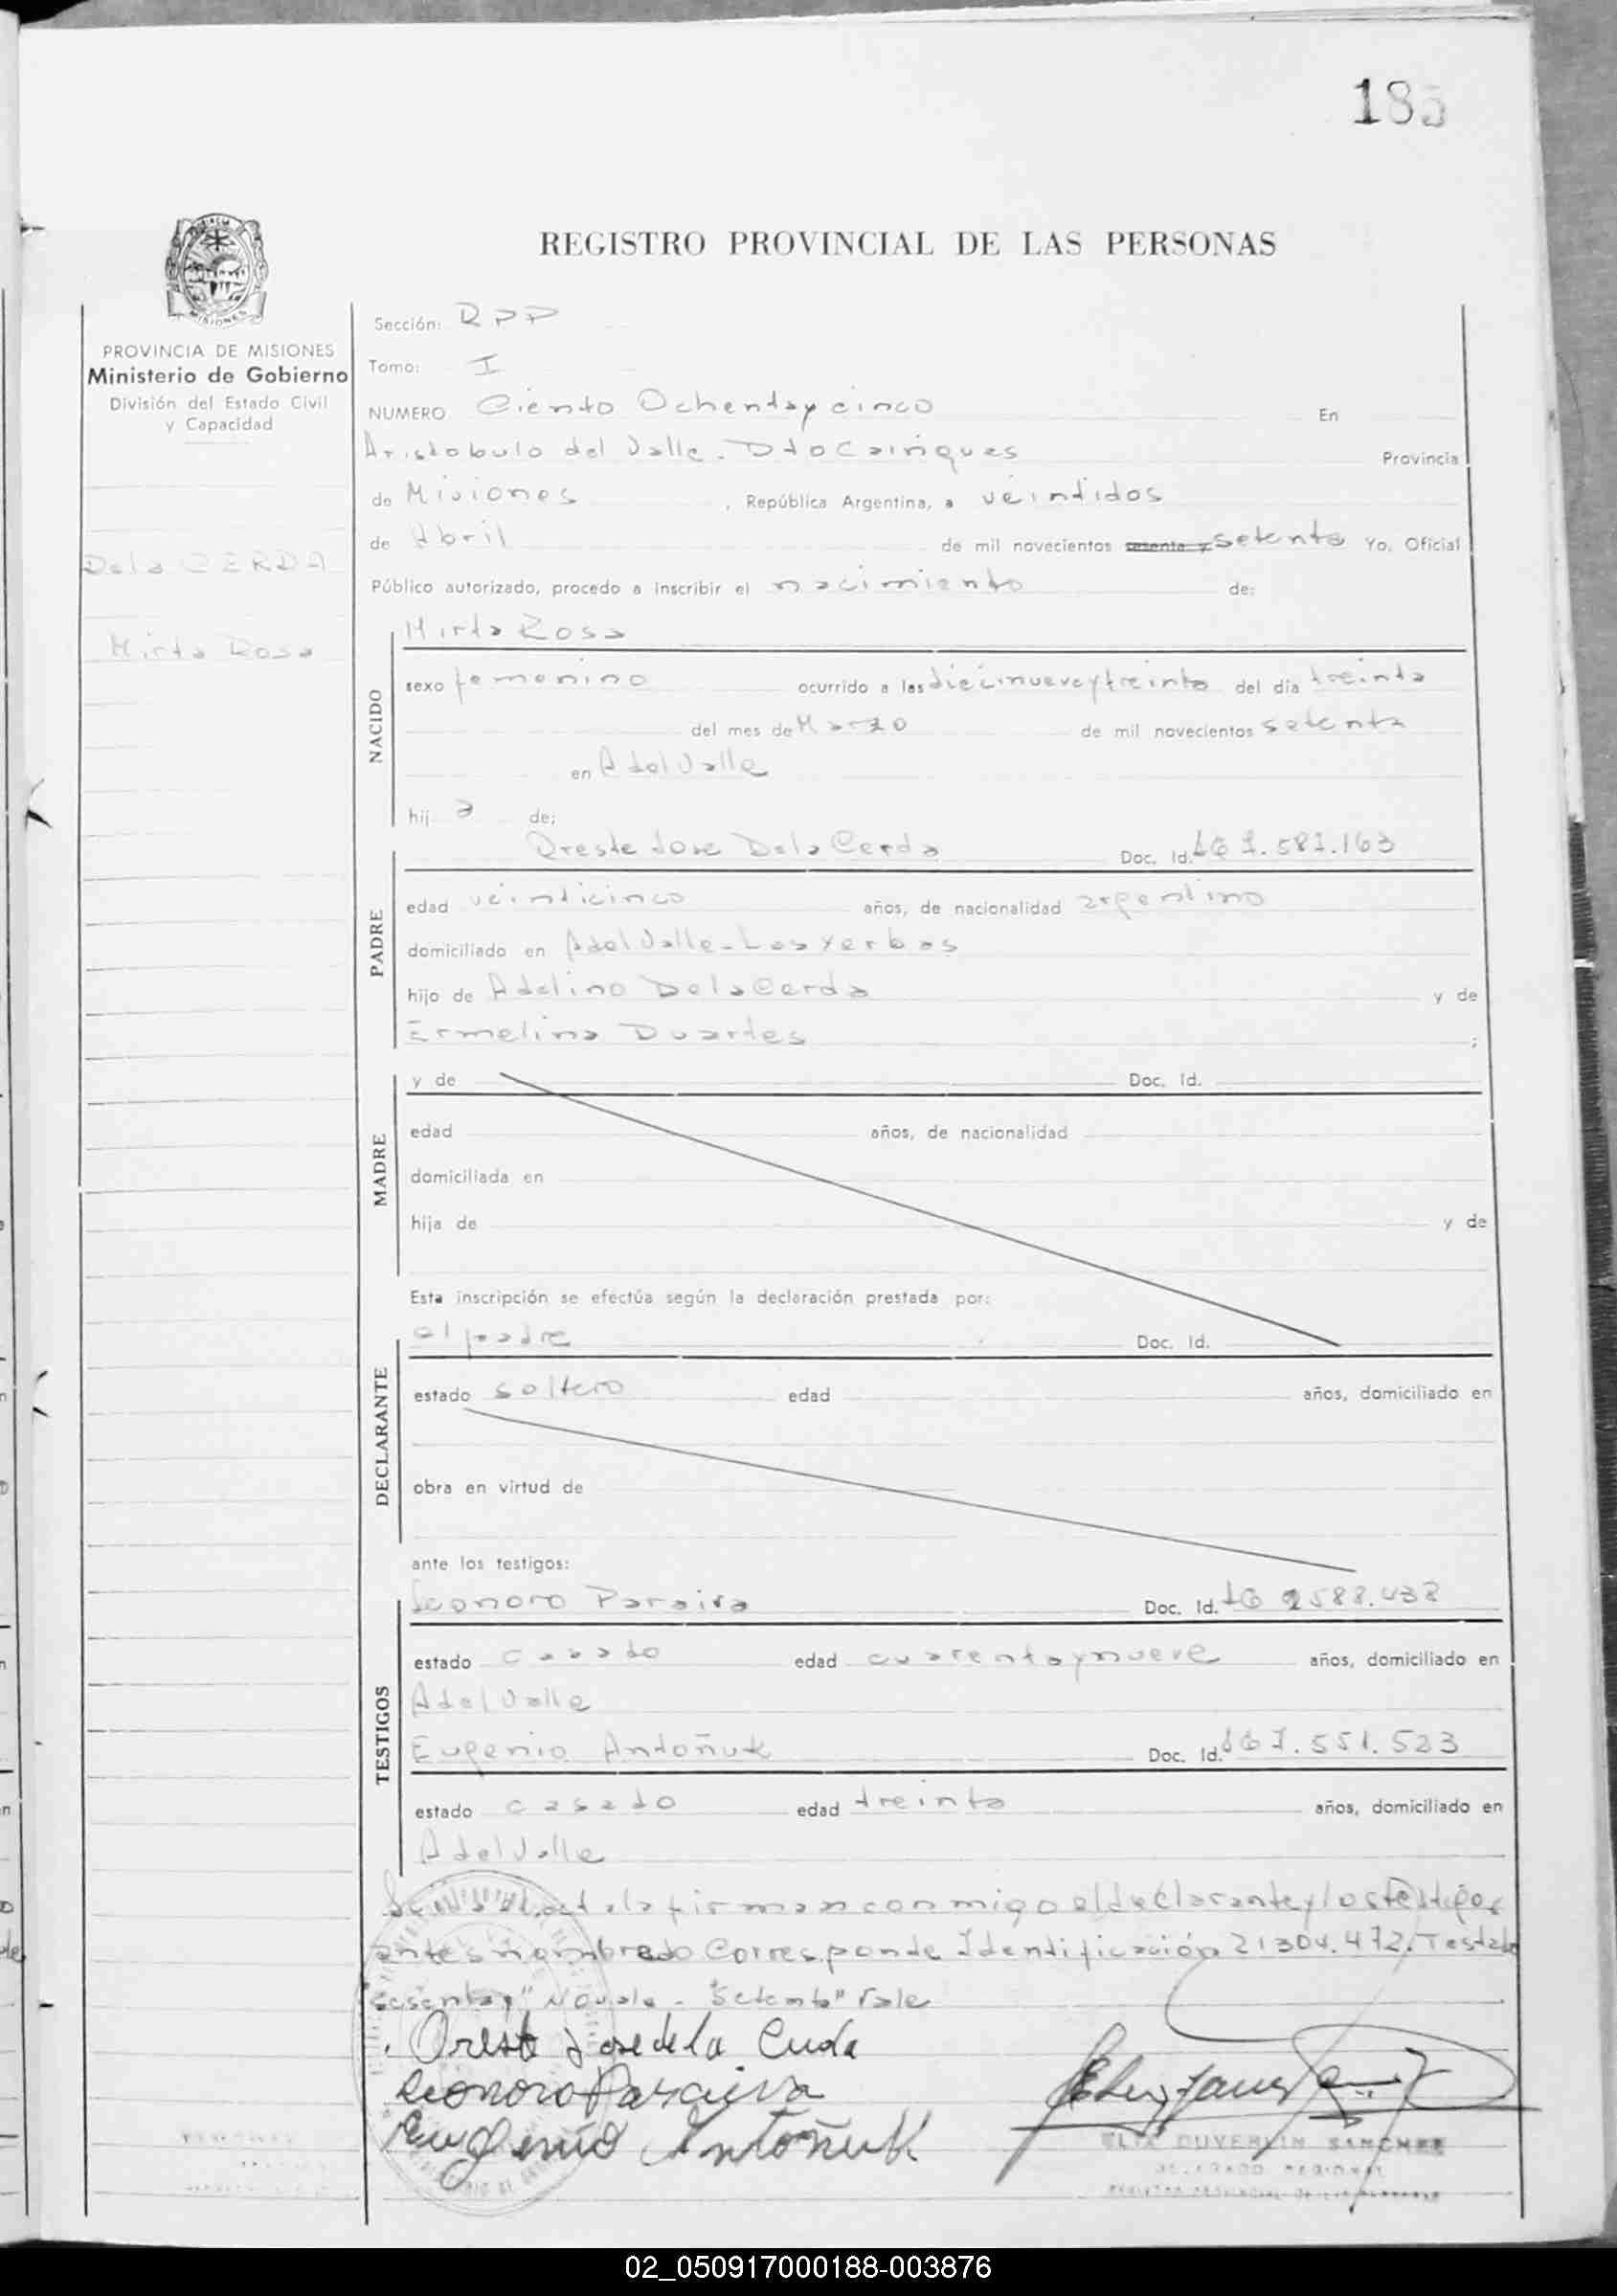 185
REGISTRO PROVINCIAL DE LAS PERSONAS
MISIONES
PROVINCIA DE MISIONES
Ministerio de Gobierno
División del Estado Civil
y Capacidad
De la CERDA
Mirta Rosa
Sección: RPP
Tomo: I
NUMERO Ciento Ochenta y cinco En
Aristobulo del Valle - Dto Cainguas Provincia
de Misiones, República Argentina, a veintidos
de Abril de mil novecientos sesenta y setenta Yo, Oficial
Público autorizado, procedo a inscribir el nacimiento de:
Mirta Rosa
NACIDO
sexo femenino ocurrido a las diecinueve y treinta del día treinta
del mes de Marzo de mil novecientos setenta
en A del Valle
hij a de:
Oreste Jose De la Cerda Doc. Id. 7.587.163
PADRE
edad veinticinco años, de nacionalidad argentino
domiciliado en A del Valle - Las Yerbas
hijo de Adelino De la Cerda y de
Ermelina Duartes ;
MADRE
y de Doc. Id.
edad años, de nacionalidad
domiciliada en
hija de y de
Esta inscripción se efectúa según la declaración prestada por:
el padre Doc. Id.
DECLARANTE
estado soltero edad años, domiciliado en
obra en virtud de
ante los testigos:
Leonoro Paraiva Doc. Id.
TESTIGOS
estado casado edad cuarenta y nueve años, domiciliado en
A del Valle
Eugenio Antoñuk Doc. Id. 7.551.523
estado casado edad treinta años, domiciliado en
A del Valle
acta la firman conmigo el declarante y los testigos
antes nombrado Corresponde Identificación 21304.472. Testado
"sesenta y" No vale - "Setenta" Vale
Orest Jose de la Cerda
Leonoro Paraiva
Eugenio Antoñuk
ELIA DUVERLIN SANCHEZ
DELEGADO REGIONAL
REGISTRO PROVINCIAL DE LAS PERSONAS
02_050917000188-003876